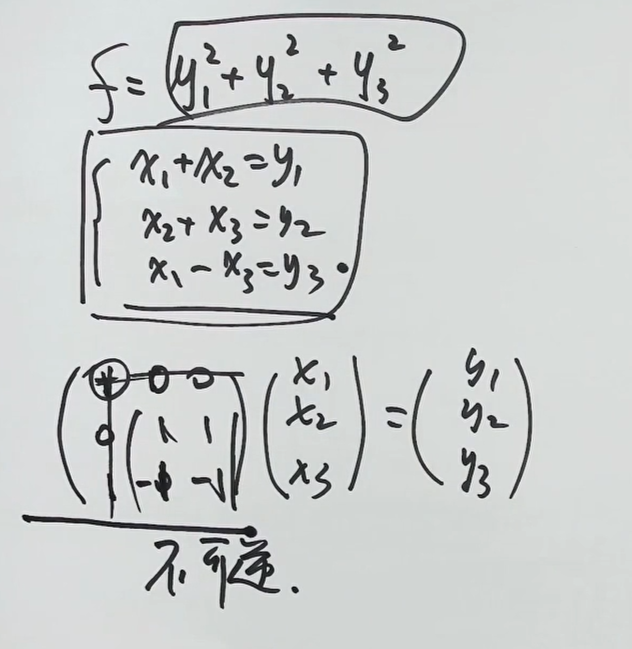 f = y₁² + y₂² + y₃²
x₁ + x₂ = y₁
x₂ + x₃ = y₂
x₁ - x₃ = y₃
0 0 x₁ y₁
0 1 1 x₂ = y₂
1 -1 x₃ y₃
不可逆.